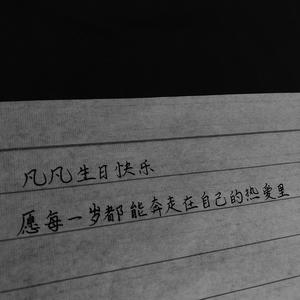 凡凡生日快乐
愿每一岁都能奔走在自己的热爱里